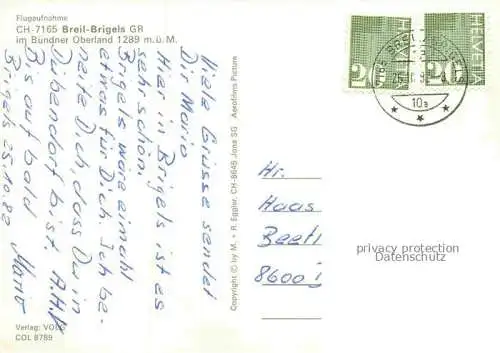 Flugaufnahme
CH-7165 Breil-Brigels GR
im Bündner Oberland 1289 m.ü.M.
Viele Grüsse sendet
Dir Mario
Hier in Brigels ist es
sehr schön.
Brigels wäre einahl
etwas für Dich. Ich be-
neite Dich, dass Du in
Dübendorf bist. A.H.V
Bis auf bald
Mario
Brigels 25.10.82
Verlag: VOLG
COL 8789
Copyright © by M. + R. Eggler, CH-8645 Jona SG Aerofilms Picture
HELVETIA
20
HELVETIA
20
10a
Hr.
Haas
8600
privacy protection
Datenschutz